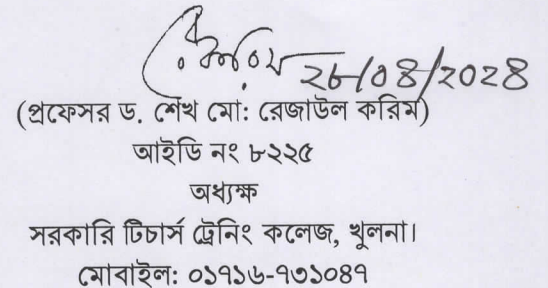 ২৮/০৪/২০২৪
(প্রফেসর ড. শেখ মো: রেজাউল করিম)
আইডি নং ৮২২৫
অধ্যক্ষ
সরকারি টিচার্স ট্রেনিং কলেজ, খুলনা।
মোবাইল: ০১৭১৬-৭৩১০৪৭